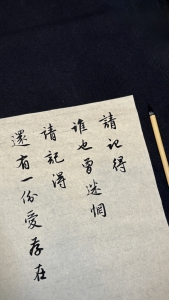 請記得
誰也曾迷惘
請記得
還有一份愛存在